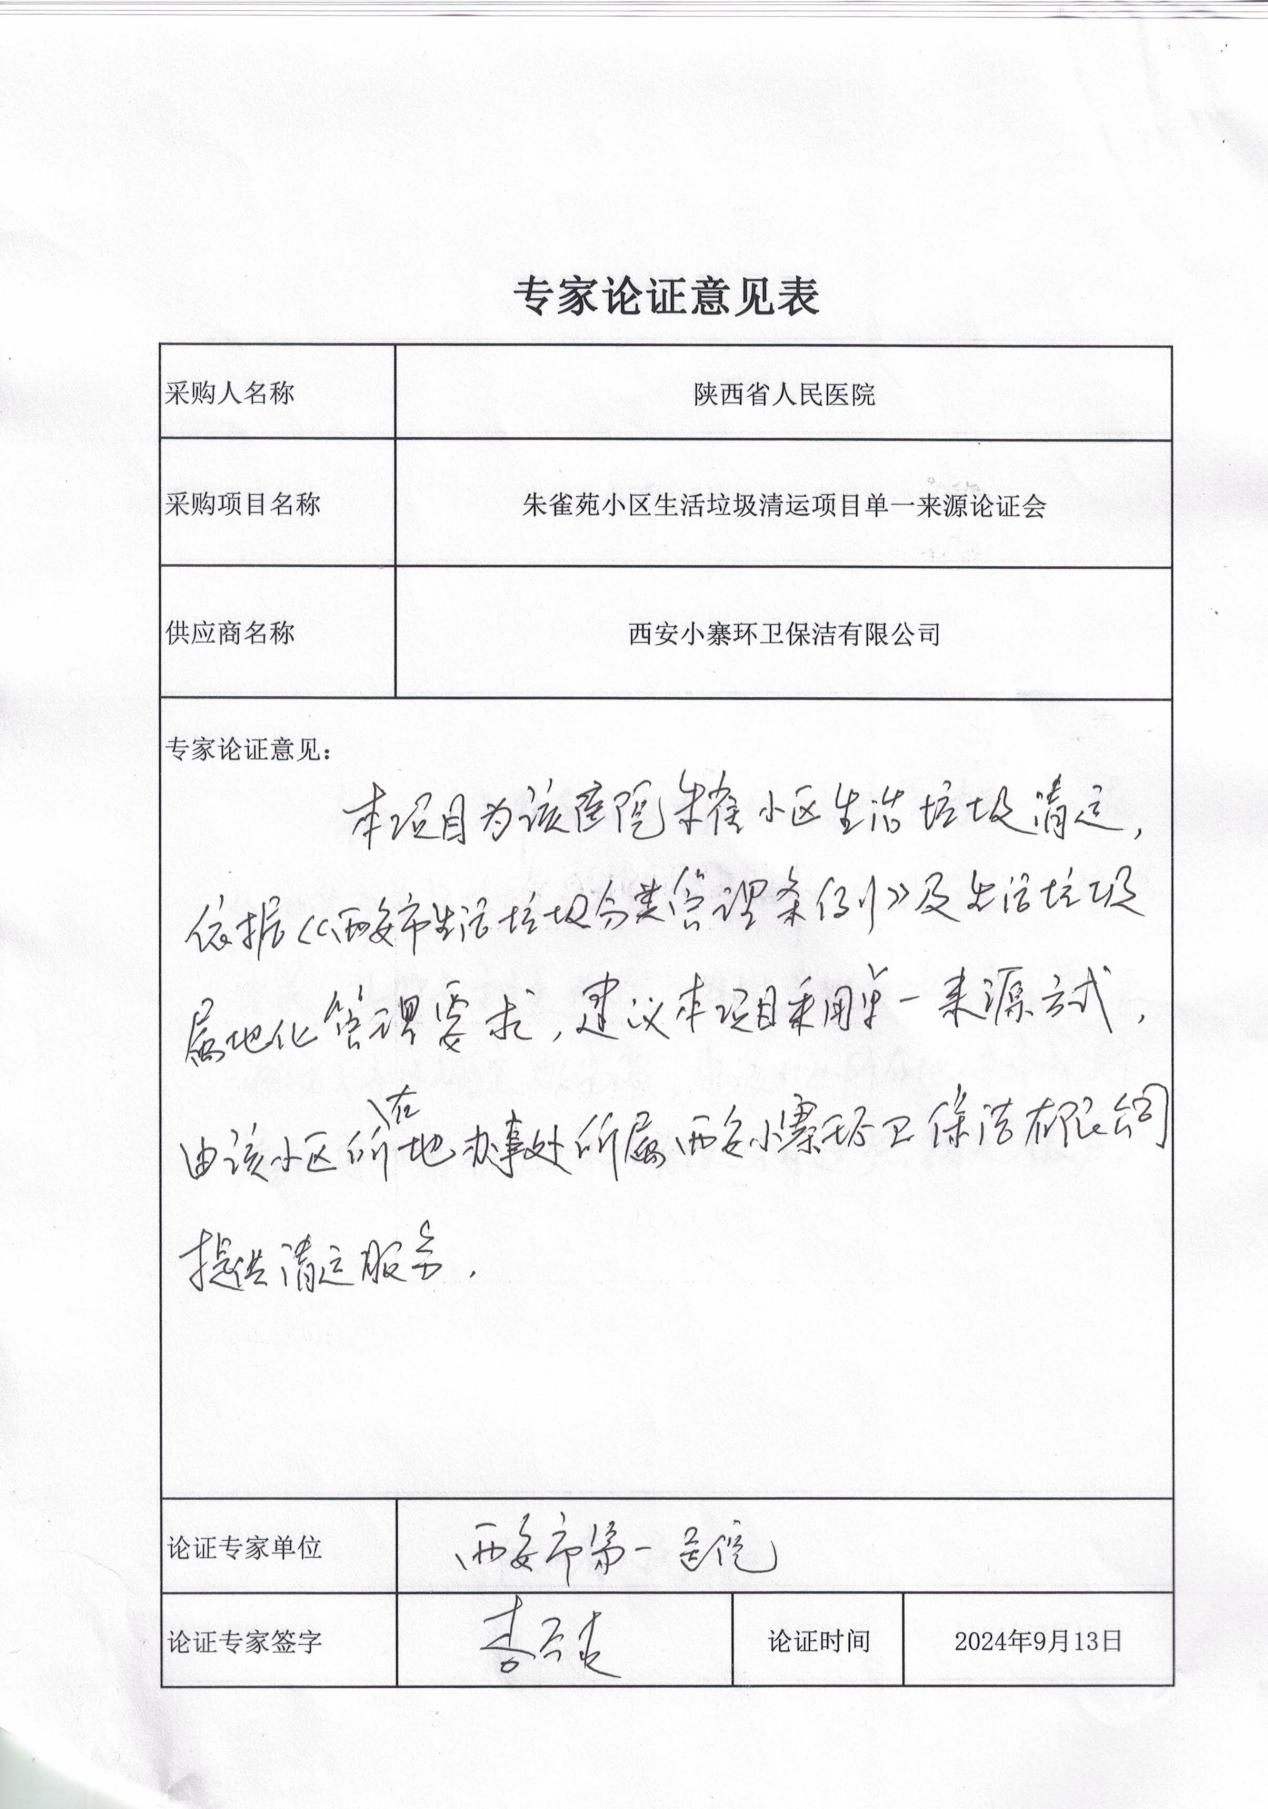 专家论证意见表
采购人名称 陕西省人民医院
采购项目名称 朱雀苑小区生活垃圾清运项目单一来源论证会
供应商名称 西安小寨环卫保洁有限公司
专家论证意见：
本项目为该医院朱雀小区生活垃圾清运，
依据《西安市生活垃圾分类管理条例》及生活垃圾
属地化管理要求，建议本项目采用单一来源方式，
由该小区所在地办事处所属西安小寨环卫保洁有限公司
提供清运服务．
论证专家单位 西安市第一医院
论证专家签字 李 论证时间 2024年9月13日